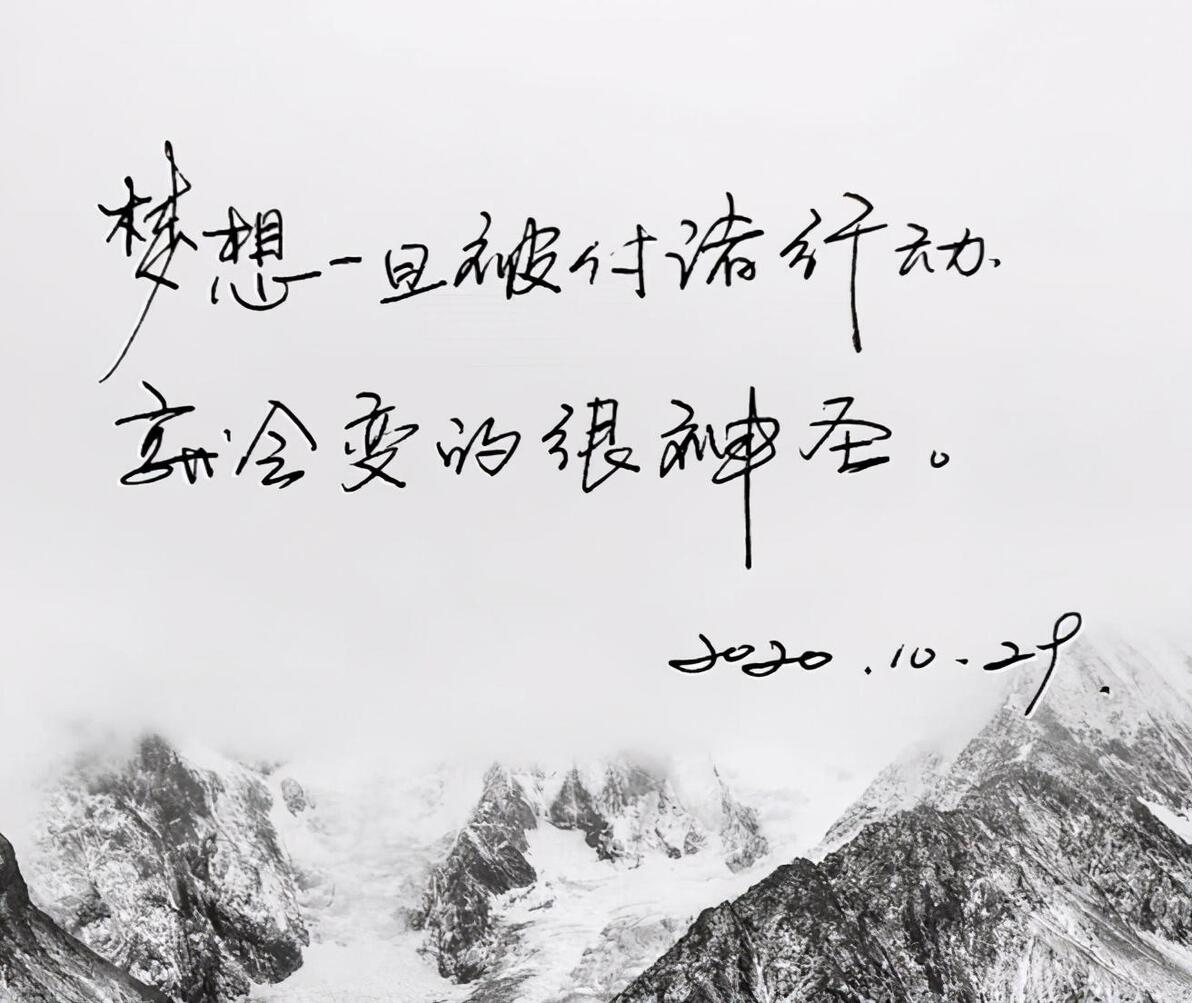 梦想一旦被付诸行动
就会变的很神圣。
2020.10.29.